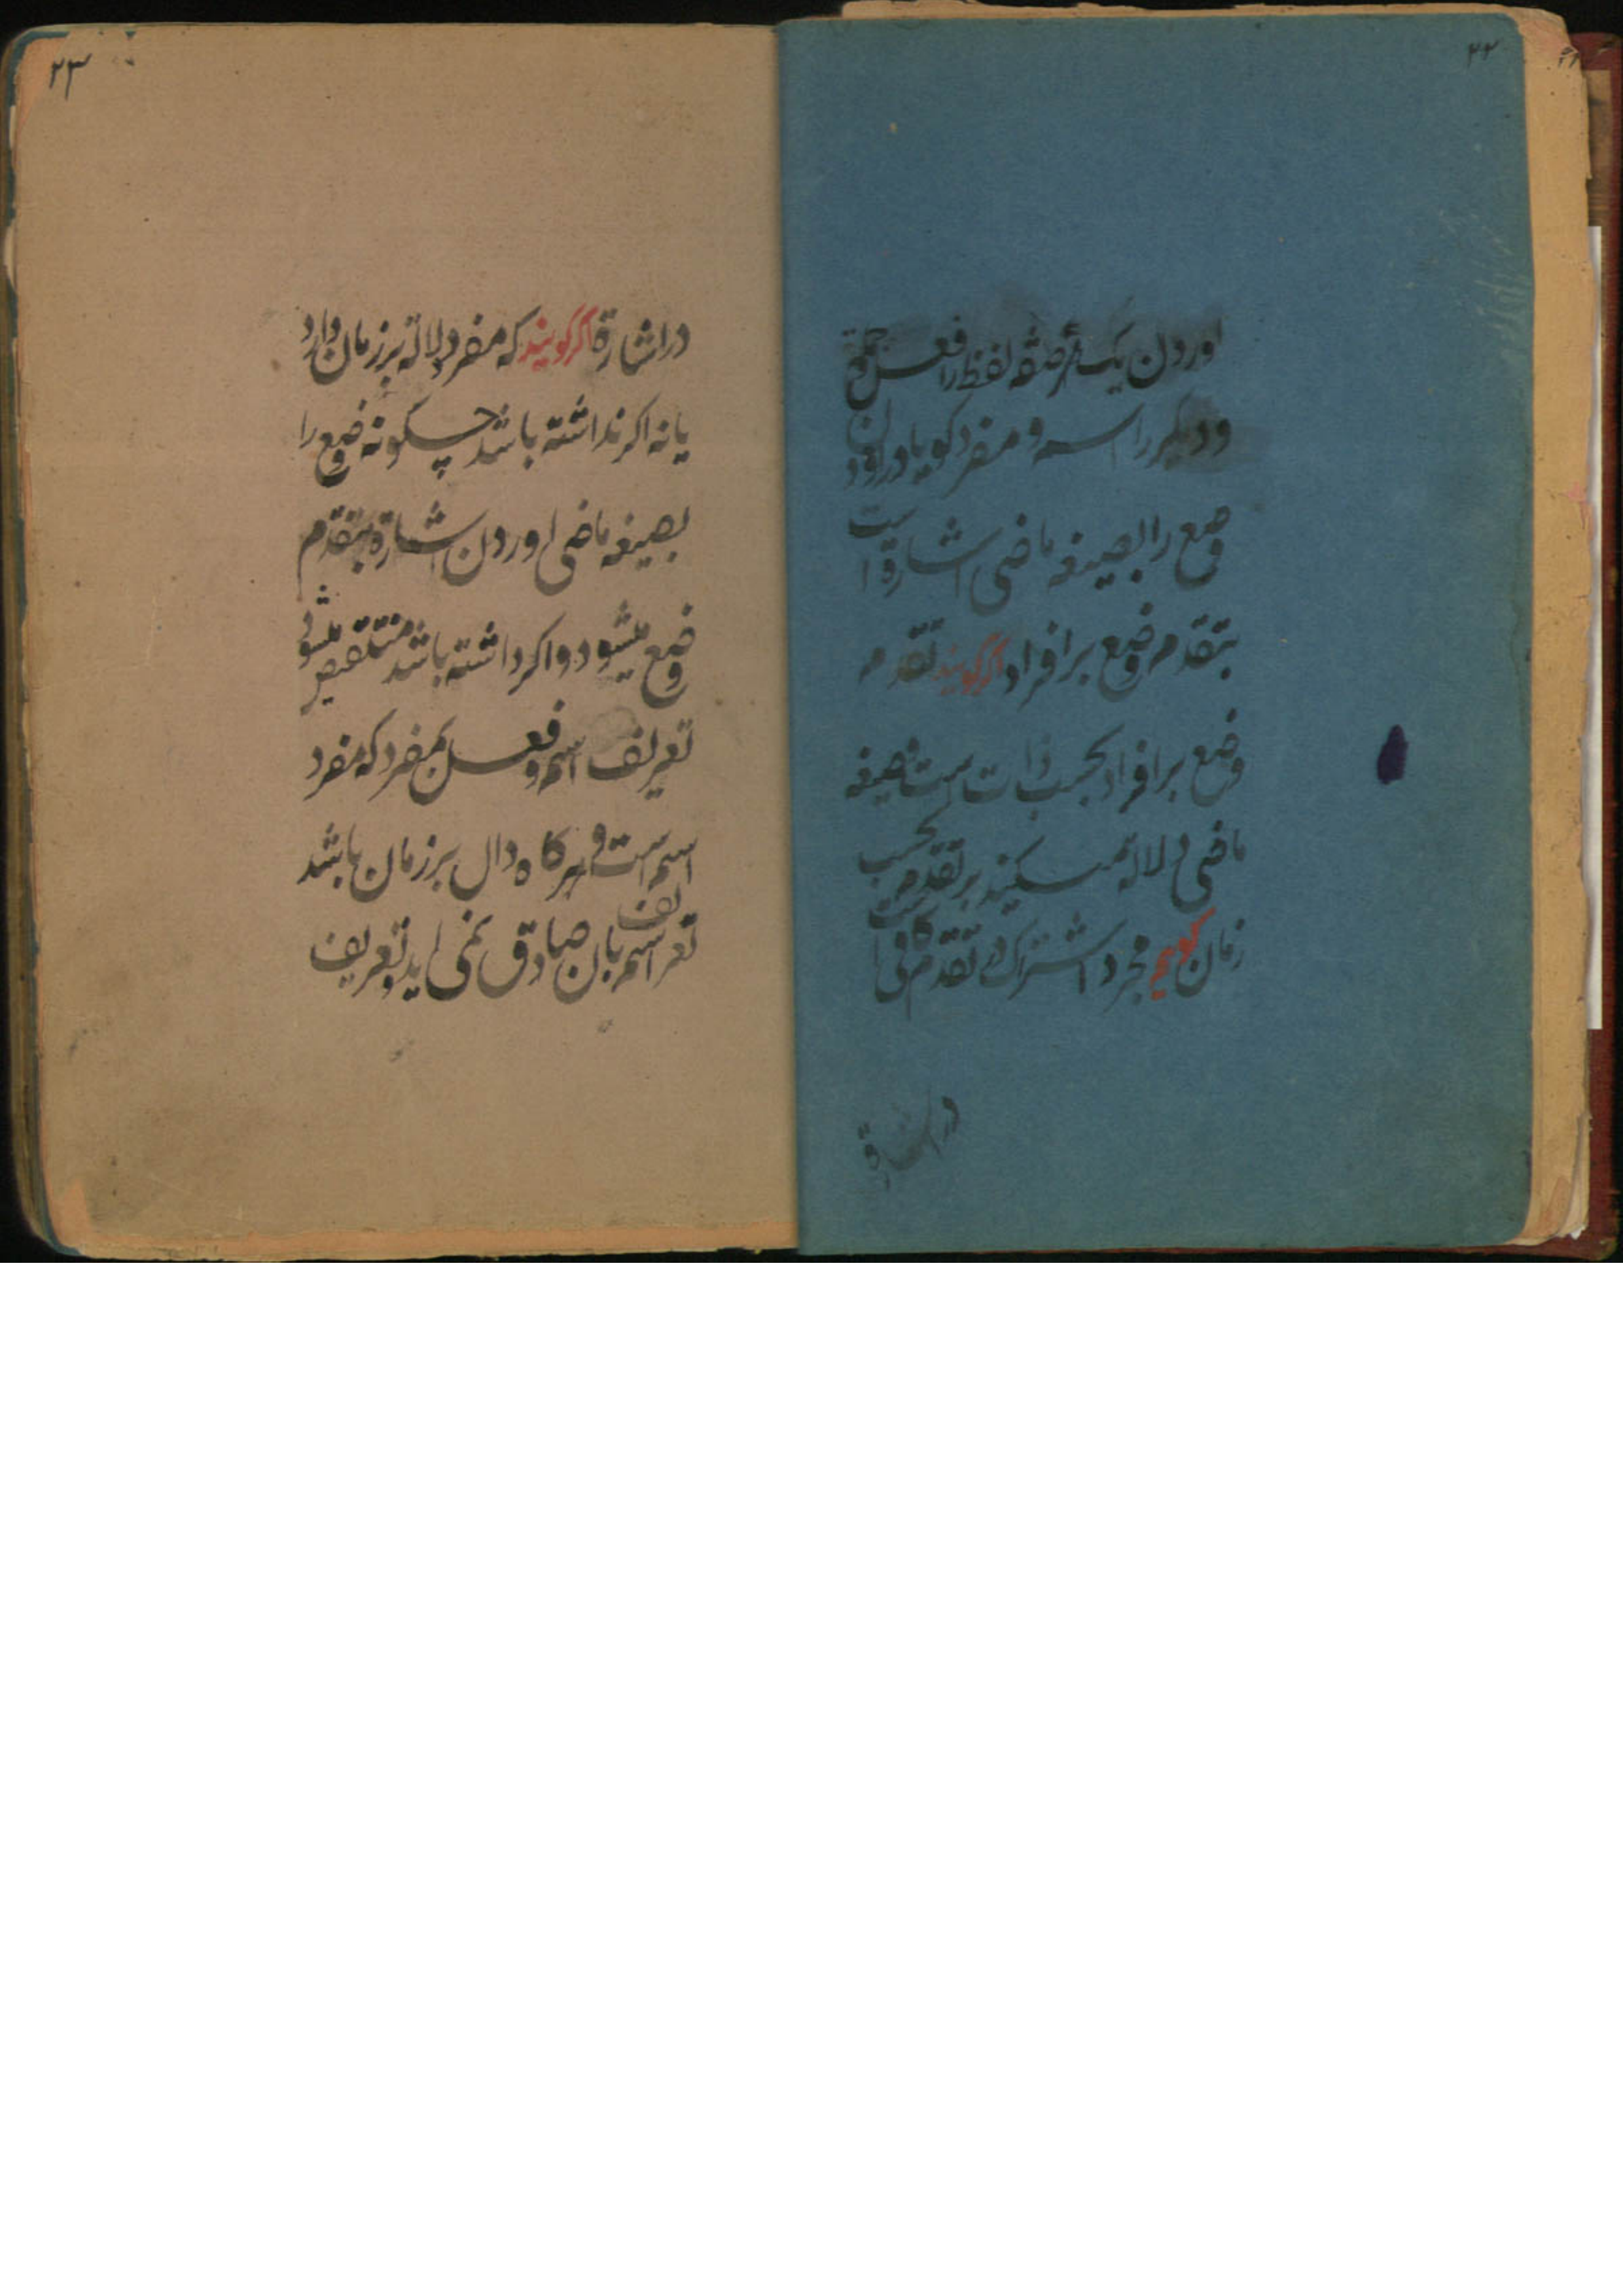 ۲۲
اوردن یک صفة لفظ را فعل و جملة
و دیگر را اسم و مفرد گویا در اوردن
وضع را بصیغه ماضی اشارة است
بتقدم وضع بر افراد اگر گویند تقدم
وضع بر افراد بحسب ذات است صیغه
ماضی دلالة میکند بر تقدم بحسب
زمان گویم مجرد اشتراک در تقدم کافی است
در اشارة
۲۳
در اشارة اگر گویند که مفرد دلالة بر زمان دارد
یا نه اکر نداشته باشد چکونه وضع را
بصیغه ماضی اوردن اشارة بتقدم
وضع میشود و اکر داشته باشد منتقض میشود
تعریف اسم و فعل بمفرد که مفرد
اسم است و هرکاه دال بر زمان باشد
تعریف اسم بان صادق نمی اید و تعریف